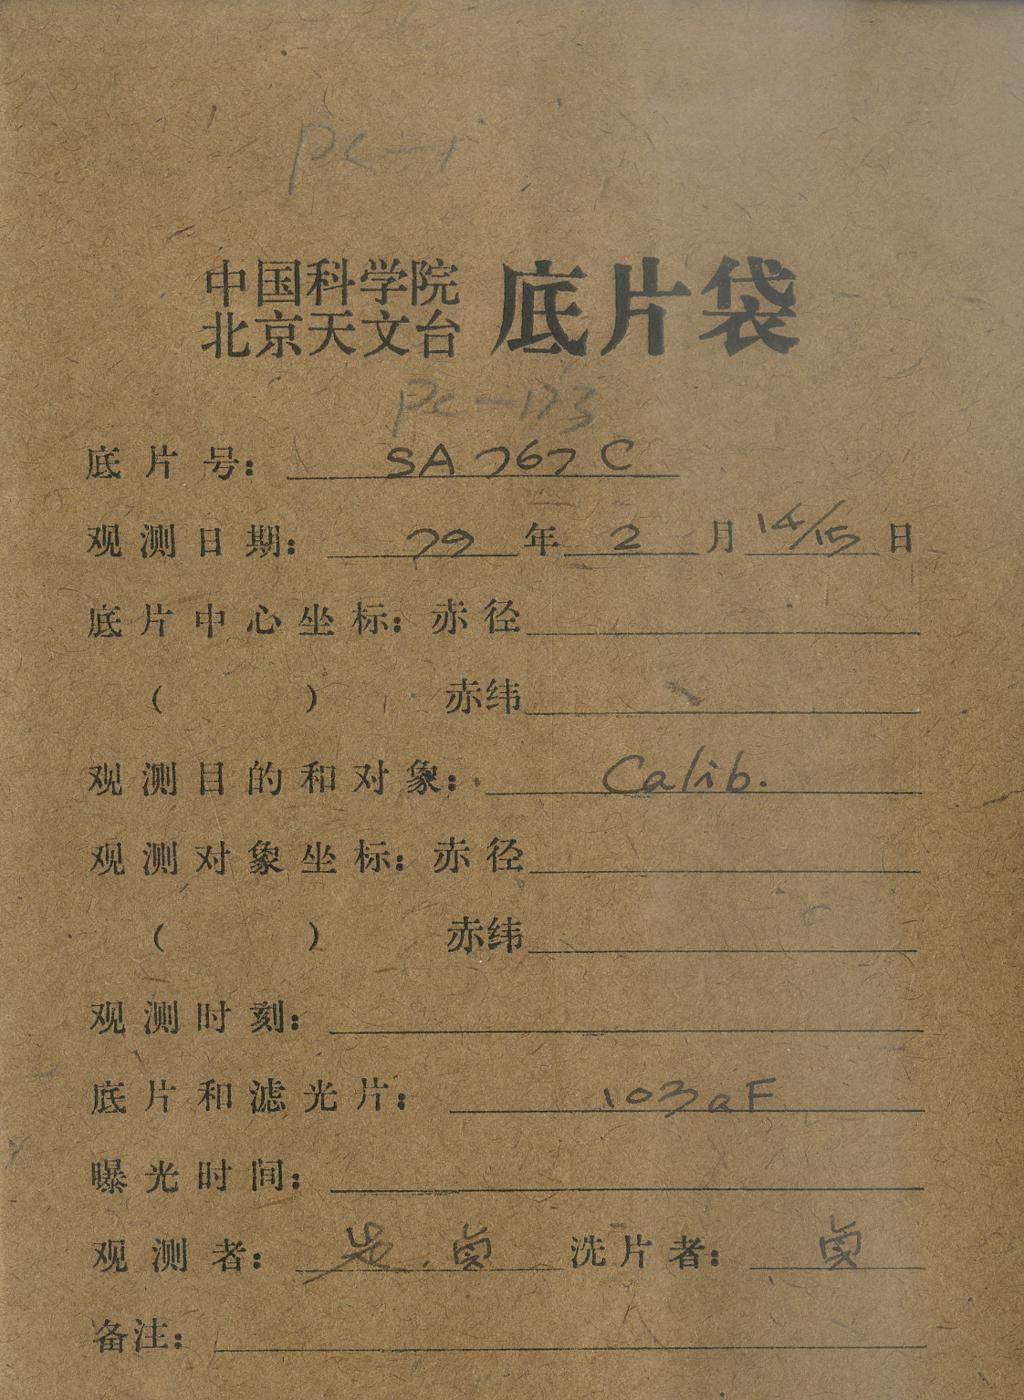 pc-1
中国科学院
北京天文台 底片袋
pc-173
底片号: SA 767 C
观测日期: 79 年 2 月 14/15 日
底片中心坐标: 赤径
( ) 赤纬
观测目的和对象: Calib.
观测对象坐标: 赤径
( ) 赤纬
观测时刻:
底片和滤光片: 103aF
曝光时间:
观测者: 洗片者:
备注: